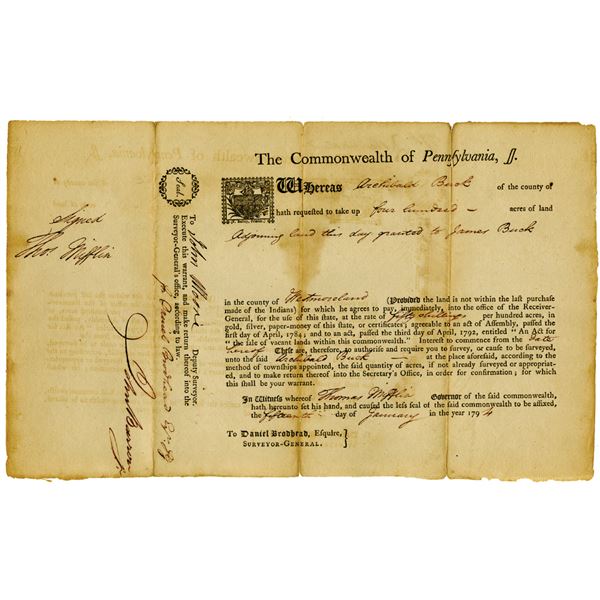 The Commonwealth of Pennſylvania, ſſ.
WHereas Archibald Buck of the county of
hath requested to take up four hundred acres of land
Adjoining land this day granted to James Buck
in the county of Westmoreland (Provided the land is not within the laſt purchaſe
made of the Indians) for which he agrees to pay, immediately, into the office of the Receiver-
General, for the uſe of this ſtate, at the rate of fifty shillings per hundred acres, in
gold, ſilver, paper-money of this ſtate, or certificates; agreeable to an act of Aſſembly, paſſed the
firſt day of April, 1784; and to an act, paſſed the third day of April, 1792, entitled "An Act for
"the ſale of vacant lands within this commonwealth." Intereſt to commence from the date
hereof Theſe are, therefore, to authoriſe and require you to ſurvey, or cauſe to be ſurveyed,
unto the ſaid Archibald Buck at the place aforeſaid, according to the
method of townſhips appointed, the ſaid quantity of acres, if not already ſurveyed or appropriat-
ed, and to make return thereof into the Secretary's Office, in order for confirmation; for which
this ſhall be your warrant.
In Witneſs whereof Thomas Mifflin Governor of the ſaid commonwealth,
hath hereunto ſet his hand, and cauſed the leſs ſeal of the ſaid commonwealth to be affixed,
the day of January in the year 1794
To Daniel Brodhead, Eſquire,
Surveyor-General.
Seal.
Signed
Thos. Mifflin
To John Deputy Surveyor.
Execute this warrant, and make return thereof into the
Surveyor-General's office, according to law.
Daniel Brodhead
John